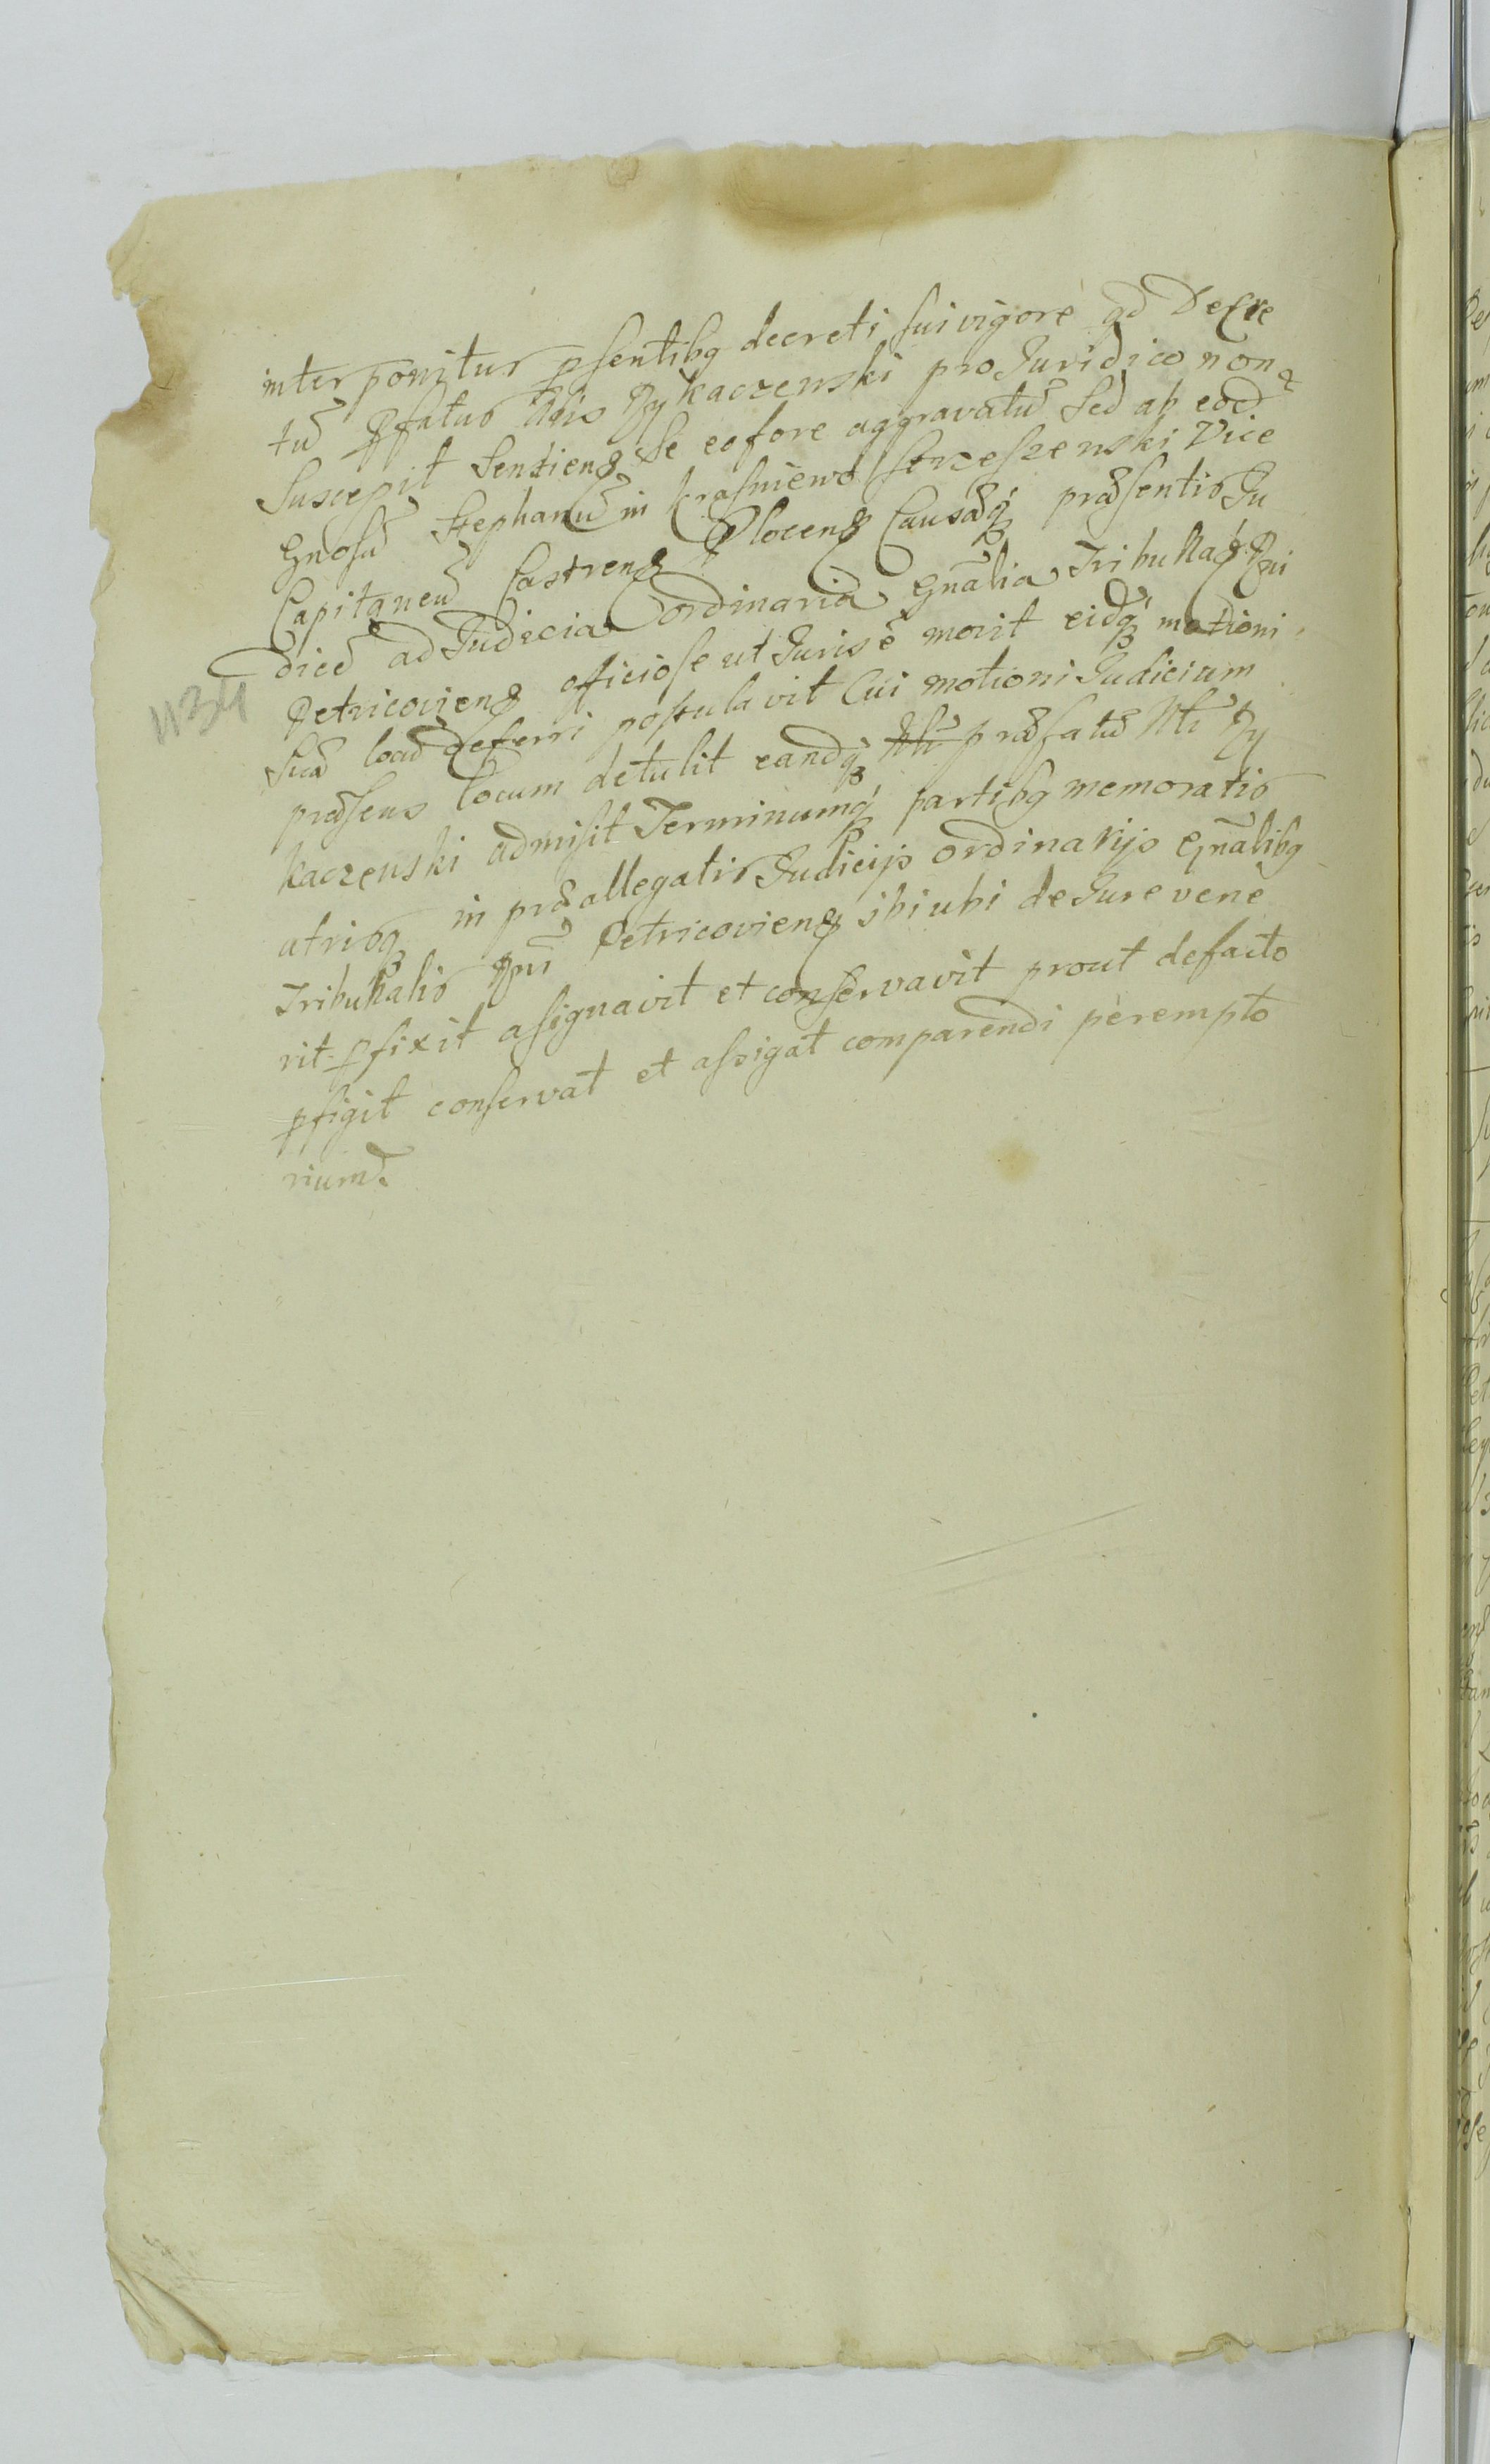 interponitur psentibq decreti sui vigore qd Decre
tū pfatus Nlis Rykaczewski pro Juridico non
Suscepit Sentiens Se eo fore aggravatū Sed ab eod
Gnoso Stephano in Krasniewo Strzeszewski Vice
Capitaneo Castrens Plocens Causāq præsentis Ju
dicii ad Judicia ordinaria Gnalia Tribulis Rni
Petricoviens officiose ut Juris e movit eidq motioni
Suæ locū deferri postulavit Cui motioni Judicium
præsens locum detulit eandq præfato Nli Ry
kaczewski admisit Terminumq partibq memoratis
utrisq in præallegatis Judicijs ordinarijs Gnalibq
Tribulis Rni Petricoviens ibi ubi de Jure vene
rit pfixit assignavit et conservavit prout de facto
pfigit conservat et assigat comparendi perempto
rium
1134